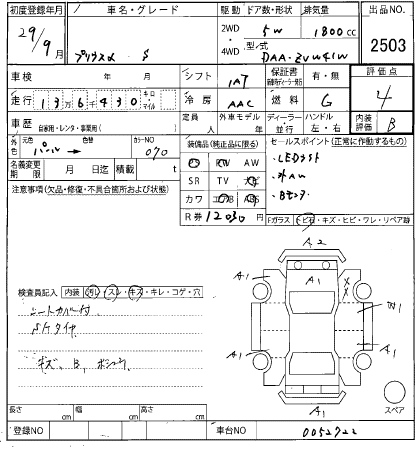 初度登録年月 車名・グレード 駆動 ドア数・形状 排気量 出品NO.
29年9月 プリウスα S 2WD 4WD 5W 1800cc 2503
型・式 DAA-ZVW41W
車検 年 月 シフト IAT 保証書 有・無 評価点
走行 13万6430 Km マイル 冷房 AAC 燃料 G 4
車歴 自家用・レンタ・事業用( ) 定員 人 外車モデル 年 ディーラー・並行 ハンドル 左・右 内装評価 B
外色 元色 パール 色替 カラーNO 070 装備品(純正品に限る) セールスポイント(正常に作動するもの)
名義変更期限 月 日迄 積載 t PW AW
・LEDライト
注意事項(欠品・修復・不具合箇所および状態) SR TV ナビ
・外AW
カワ エアB ABS
・Bモニタ
R券 12030 円 Fガラス トビ石・キズ・ヒビ・ワレ・リペア跡
検査員記入 内装 汚レ・スレ・キズ・キレ・コゲ・穴
シートカバー付
キズ、B、
A2
A1 A1 A1
X X
W1
A1 A1
A1
スペア
長さ cm 幅 cm 高さ cm
登録NO 車台NO 0052722